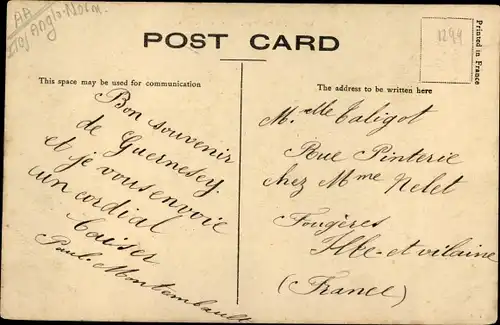 AA
Anglo-Norm.
POST CARD
1299
Printed in France
This space may be used for communication
The address to be written here
Bon souvenir
de Guernesey
et je vous envoie
un cordial
baiser
Paul Montembault
M.elle Taligot
Rue Pinterie
chez Mme Nelet
Fougères
Ille-et-vilaine
(France)